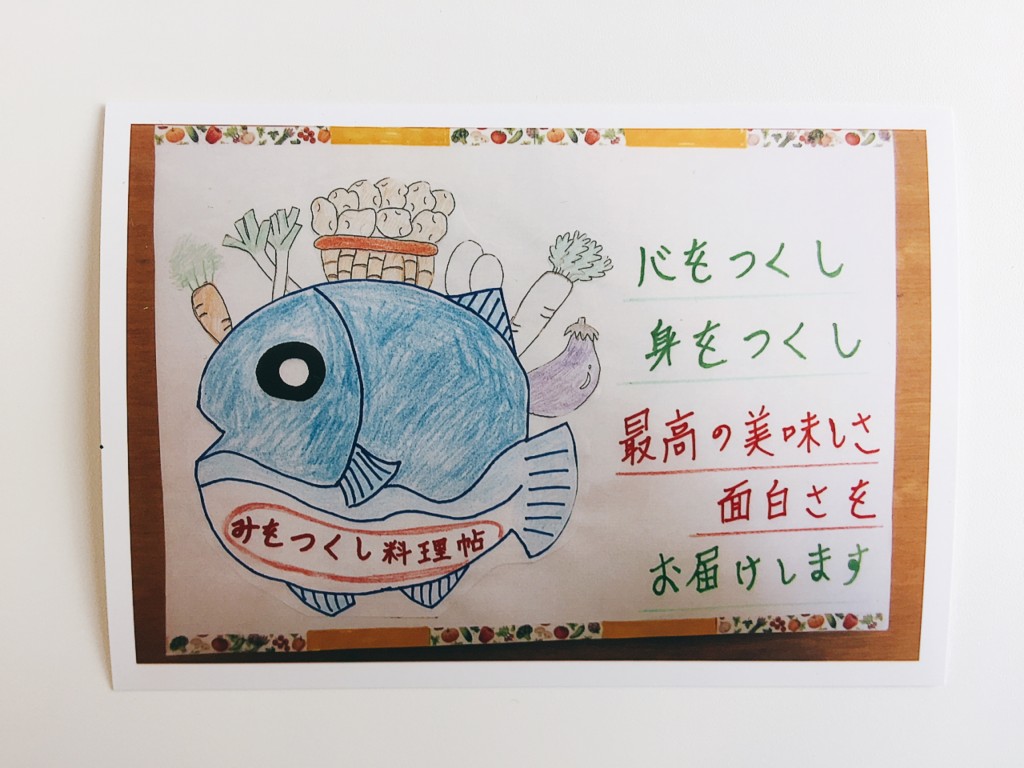 みをつくし料理帖
心をつくし
身をつくし
最高の美味しさ
面白さを
お届けします